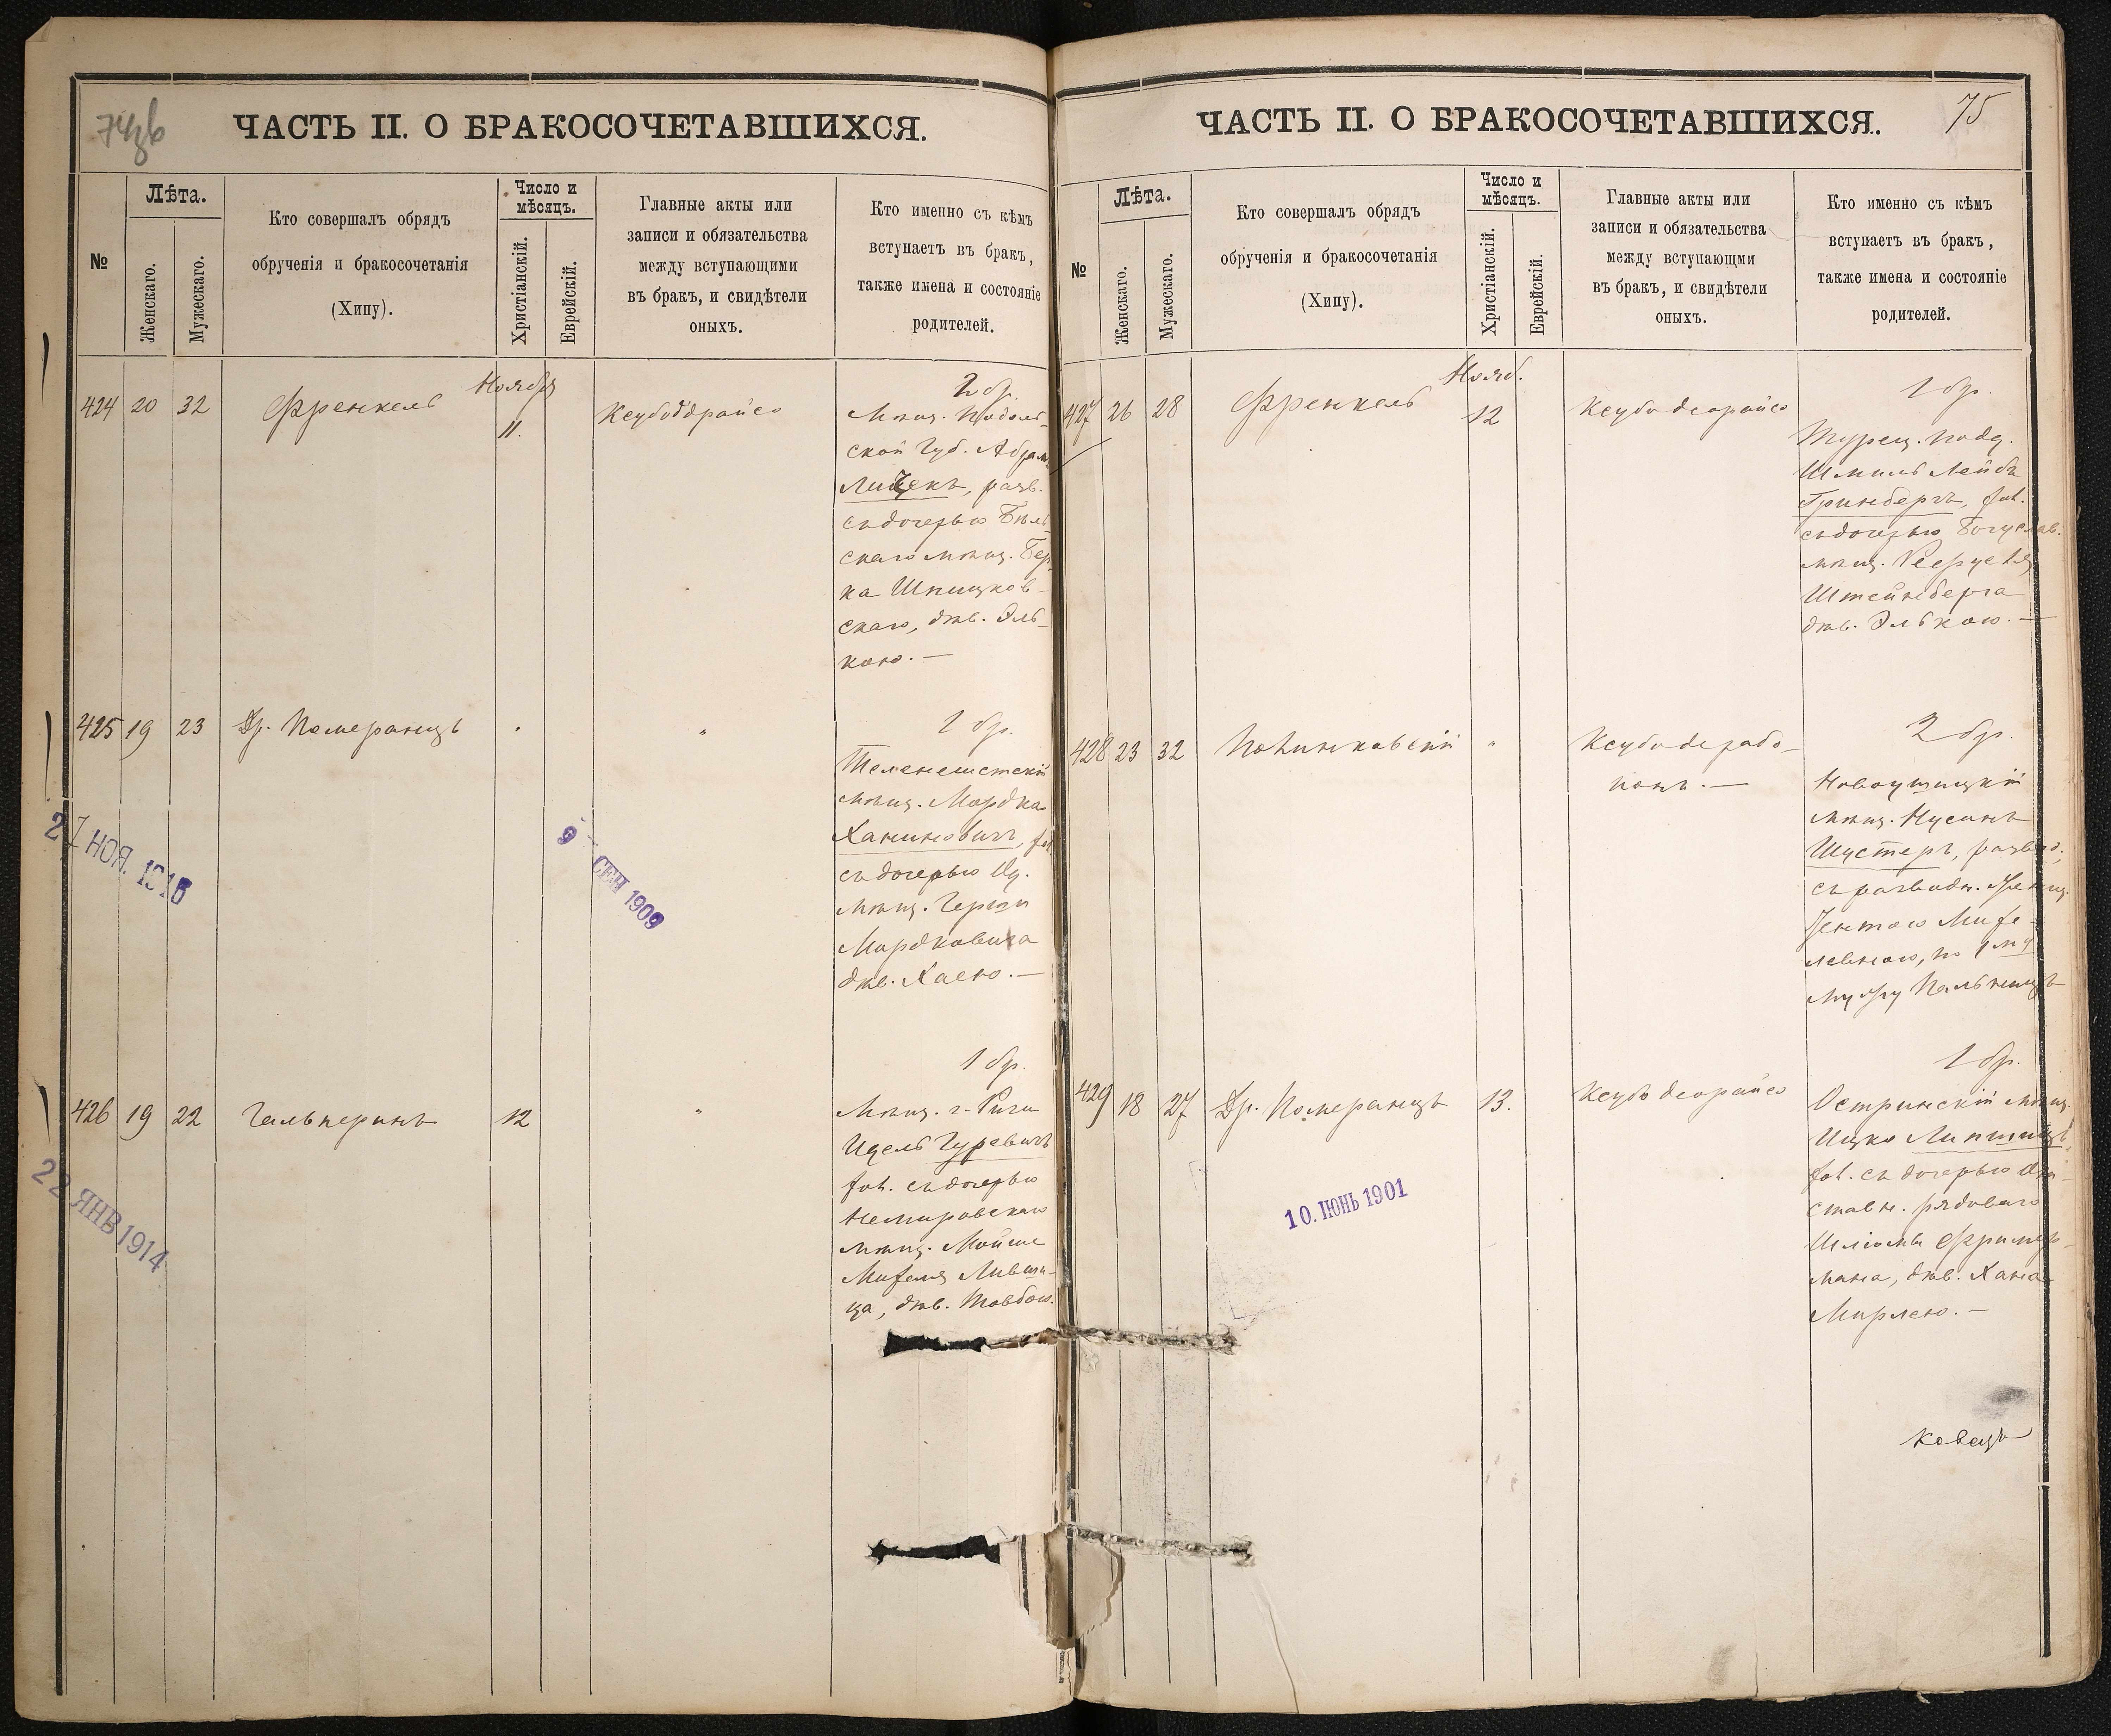 74об
ЧАСТЬ II. О БРАКОСОЧЕТАВШИХСЯ.
№
Лѣта.
Женскаго.
Мужескаго.
Кто совершалъ обрядъ
обрученія и бракосочетанія
(Хипу).
Число и
мѣсяцъ.
Христіанскій.
Еврейскій.
Главные акты или
записи и обязательства
между вступающими
въ бракъ, и свидѣтели
оныхъ.
Кто именно съ кѣмъ
вступаетъ въ бракъ,
также имена и состояніе
родителей.
424 20 32 Френкель
Ноября
11.
2 бр.
Мѣщ. Подоль-
ской Губ. Абрам
разв.
съ дочерью Бѣль-
скаго мѣщ. Бер-
ка Шпицков-
скаго, дѣв. Эль-
кою. —
425 19 23 Др. Померанцъ
"
1 бр.
Теленештскій
мѣщ. Мордка
Ханиновичъ, хол.
съ дочерью Од.
мѣщ. Герши
Мордковича
дѣв. Хаею. —
27 НОЯ. 1915
9 СЕН 1909
426 19 22 Гальперинъ 12
"
1 бр.
Мѣщ. г. Риги
Идель Гуревичъ
хол. съ дочерью
Немировскаго
мѣщ. Мойше
Михеля Лившы-
ца, дѣв. Товбою.
22 ЯНВ 1914
75
ЧАСТЬ II. О БРАКОСОЧЕТАВШИХСЯ.
№
Лѣта.
Женскаго.
Мужескаго.
Кто совершалъ обрядъ
обрученія и бракосочетанія
(Хипу).
Число и
мѣсяцъ.
Христіанскій.
Еврейскій.
Главные акты или
записи и обязательства
между вступающми
въ бракъ, и свидѣтели
оныхъ.
Кто именно съ кѣмъ
вступаетъ въ бракъ,
также имена и состояніе
родителей.
427 26 28 Френкель
Нояб.
12
Ксубо деорайсо
1 бр.
Турец. подд.
Шмиль Лейбъ
Гринбергъ, хол.
съ дочерью Богуслав.
мѣщ.
Штейнберга
дѣв. Элькою. —
428 23 32
"
Ксубо дерабо-
нонъ. —
2 бр.
Новоушицкій
мѣщ. Нусинъ
Шустеръ, развед.,
съ разводн.
Иентою Михе-
левною, по 1му
мужу
429 18 27 Др. Померанцъ 13.
Ксубо деорайсо
1 бр.
Остринскій мѣщ.
Ицко Липшицъ,
хол. съ дочерью От-
ставн. рядоваго
Шліомы Фример-
мана, дѣв. Хана-
Мирлею. —
10. ІЮНЬ 1901